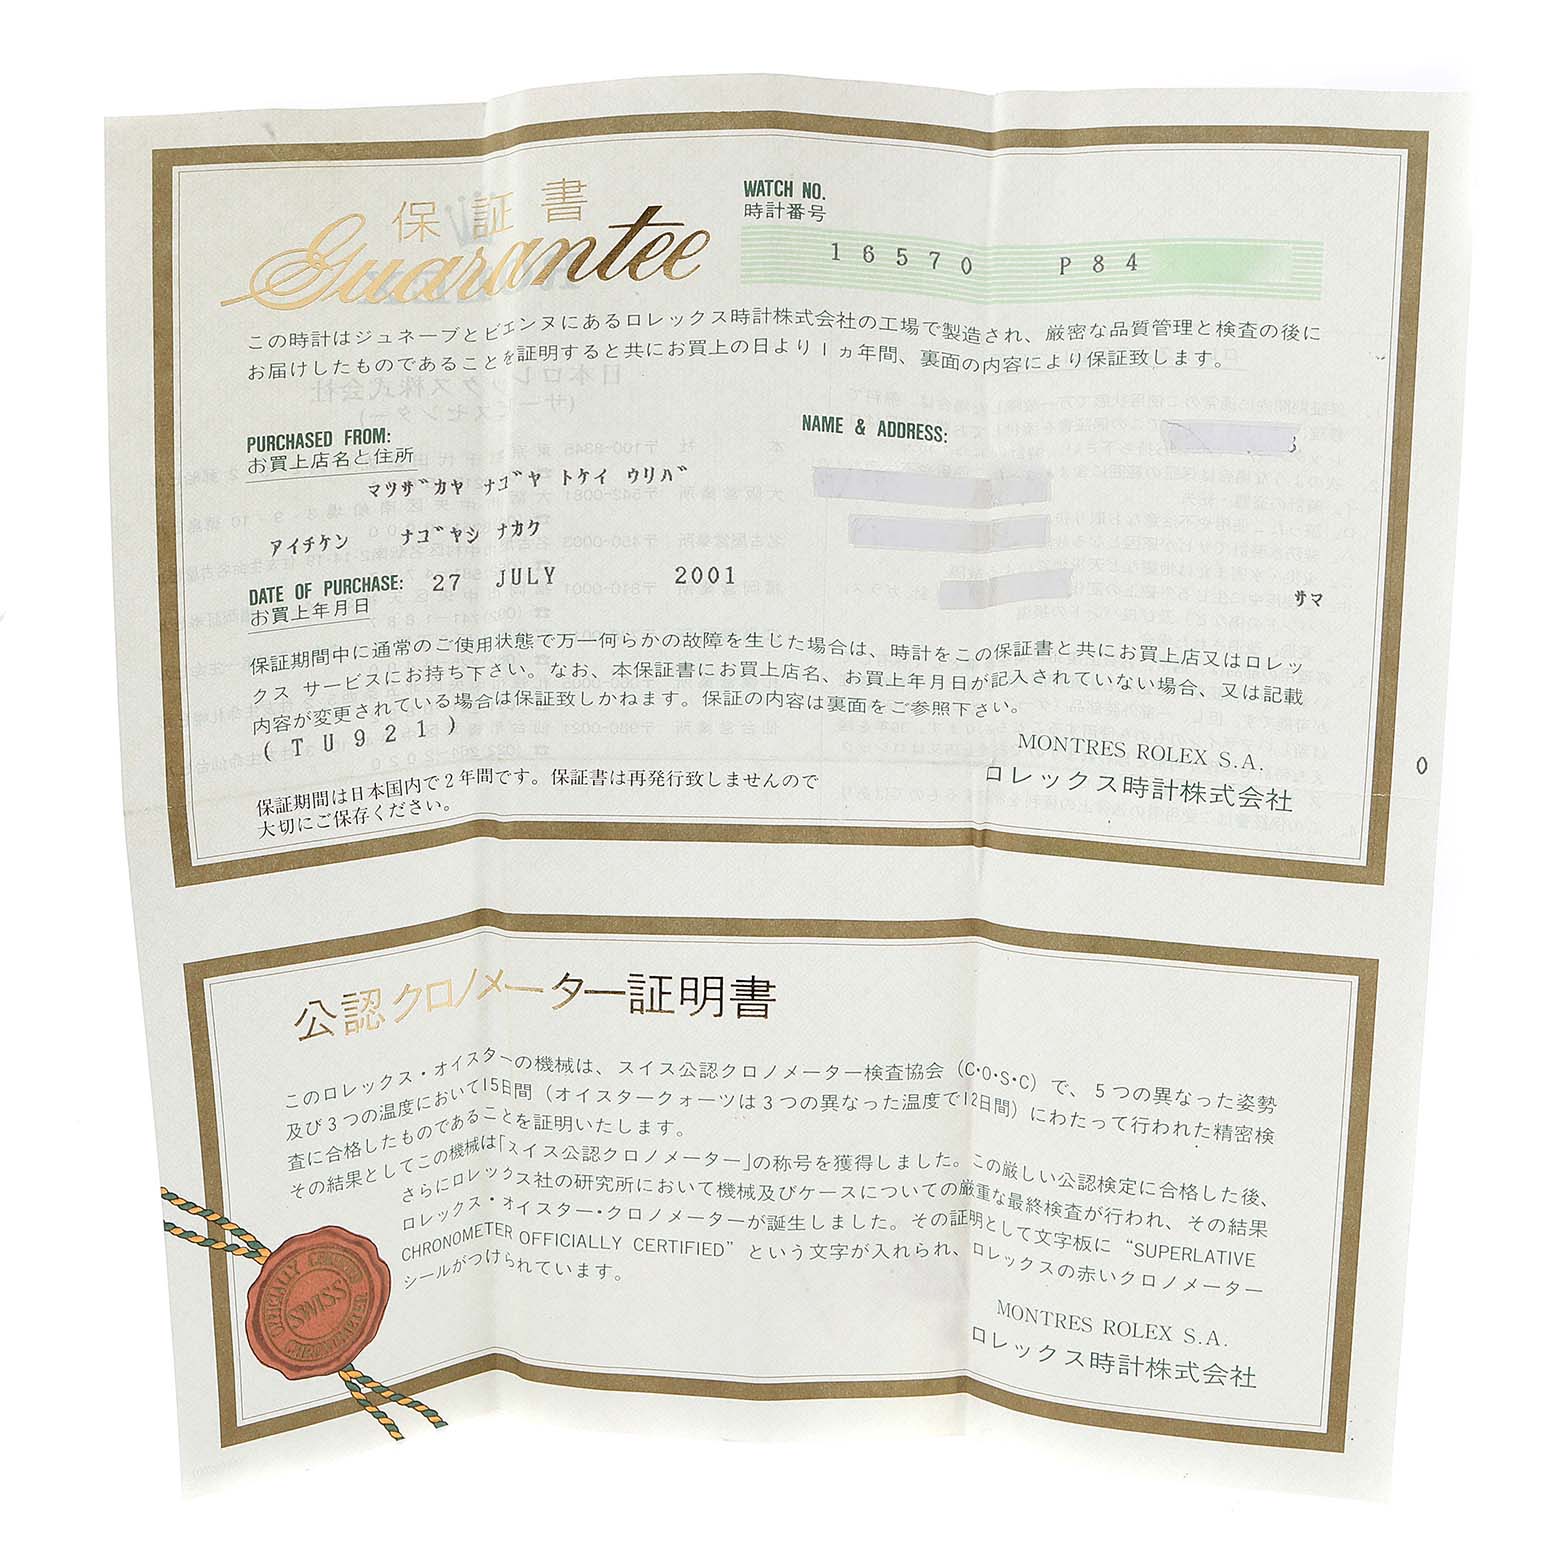 保証書
Guarantee
WATCH NO.
時計番号
16570 P84
この時計はジュネーブとビエンヌにあるロレックス時計株式会社の工場で製造され、厳密な品質管理と検査の後に
お届けしたものであることを証明すると共にお買上の日より1ヵ年間、裏面の内容により保証致します。
PURCHASED FROM:
お買上店名と住所
マツザカヤ ナゴヤ トケイ ウリバ
アイチケン ナゴヤシ ナカク
NAME & ADDRESS:
サマ
DATE OF PURCHASE: 27 JULY 2001
お買上年月日
保証期間中に通常のご使用状態で万一何らかの故障を生じた場合は、時計をこの保証書と共にお買上店又はロレッ
クス サービスにお持ち下さい。なお、本保証書にお買上店名、お買上年月日が記入されていない場合、又は記載
内容が変更されている場合は保証致しかねます。保証の内容は裏面をご参照下さい。
(TU921)
MONTRES ROLEX S.A.
ロレックス時計株式会社
0
保証期間は日本国内で2年間です。保証書は再発行致しませんので
大切にご保存ください。
公認クロノメーター証明書
このロレックス・オイスターの機械は、スイス公認クロノメーター検査協会(C・O・S・C)で、5つの異なった姿勢
及び3つの温度において15日間(オイスタークォーツは3つの異なった温度で12日間)にわたって行われた精密検
査に合格したものであることを証明いたします。
その結果としてこの機械は「スイス公認クロノメーター」の称号を獲得しました。この厳しい公認検定に合格した後、
さらにロレックス社の研究所において機械及びケースについての厳重な最終検査が行われ、その結果
ロレックス・オイスター・クロノメーターが誕生しました。その証明として文字板に“SUPERLATIVE
CHRONOMETER OFFICIALLY CERTIFIED”という文字が入れられ、ロレックスの赤いクロノメーター
シールがつけられています。
OFFICIALLY CERTIFIED
SWISS
CHRONOMETER
MONTRES ROLEX S.A.
ロレックス時計株式会社